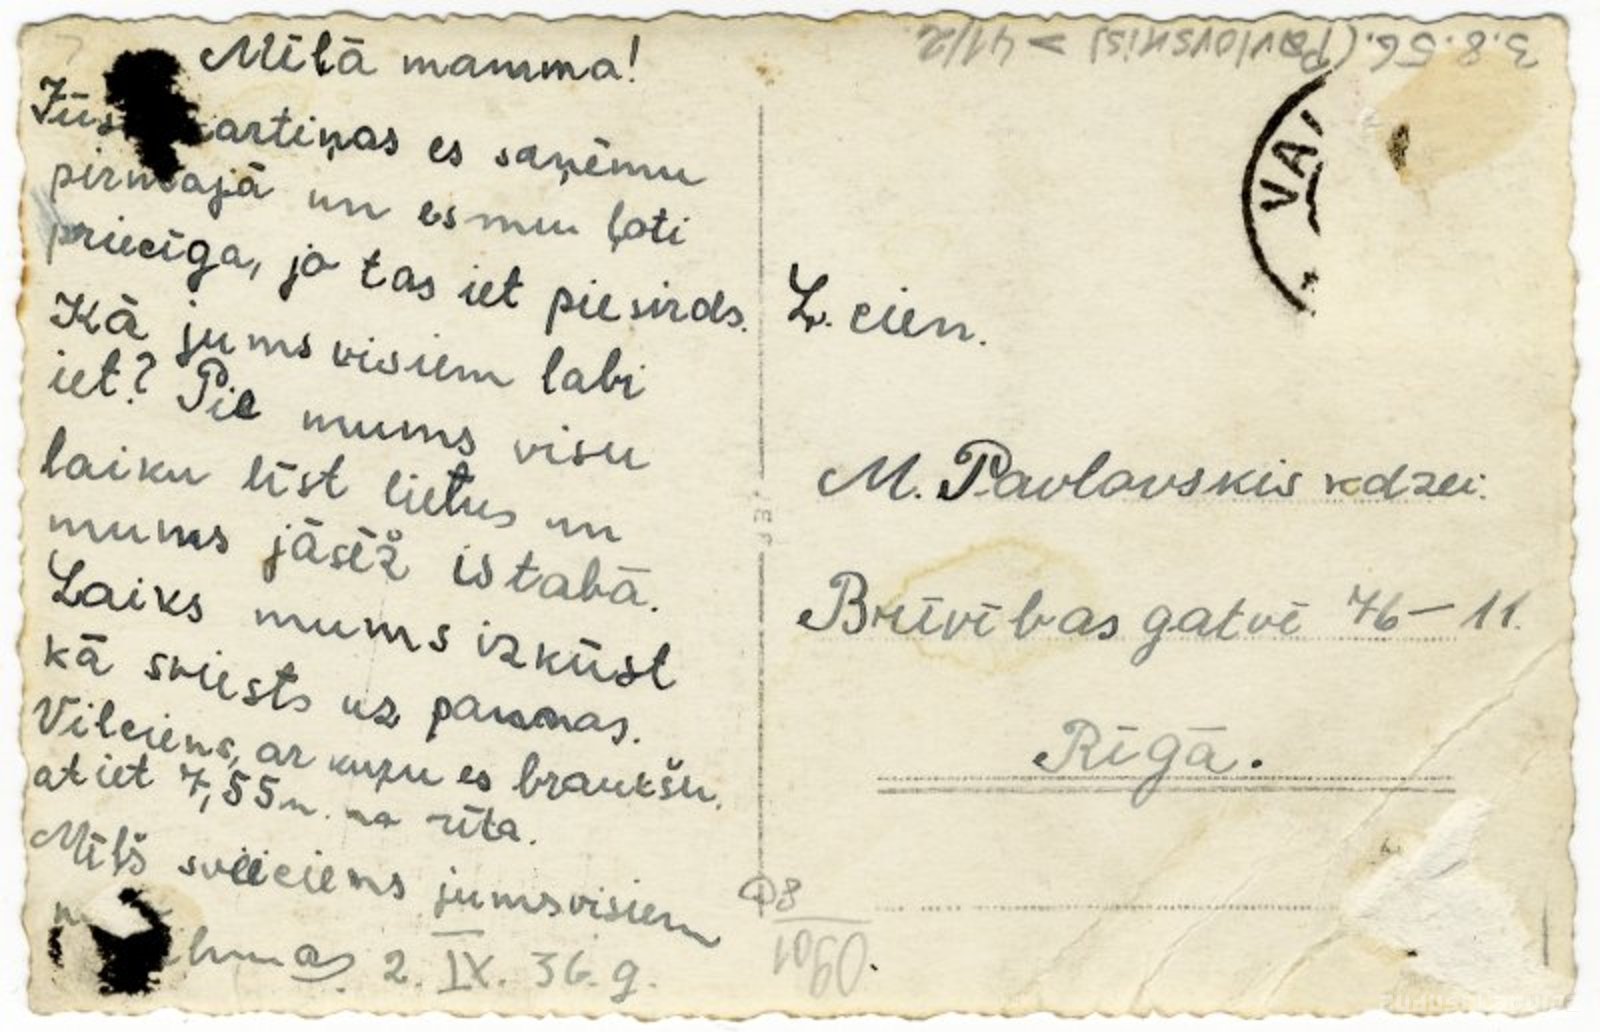 Mīļā mamma!
Jūs kartiņas es saņēmu
pirmajā un esmu ļoti
priecīga, jo tas iet pie sirds.
Kā jums visiem labi
iet? Pie mums visu
laiku līst lietus un
mums jāsēž istabā.
Laiks mums izkūst
kā sviests uz pannas.
Vilciens, ar kuŗu es braukšu
atiet 7,55 m. no rīta.
Mīļš sveiciens jums visiem
2. IX. 36. g.
3.8.56. (Pavlovskis) > 41/2.
VA
L. cien.
M. Pavlovskis kdzei.
Brīvības gatvē 76 – 11.
Rīgā.
D8
1090